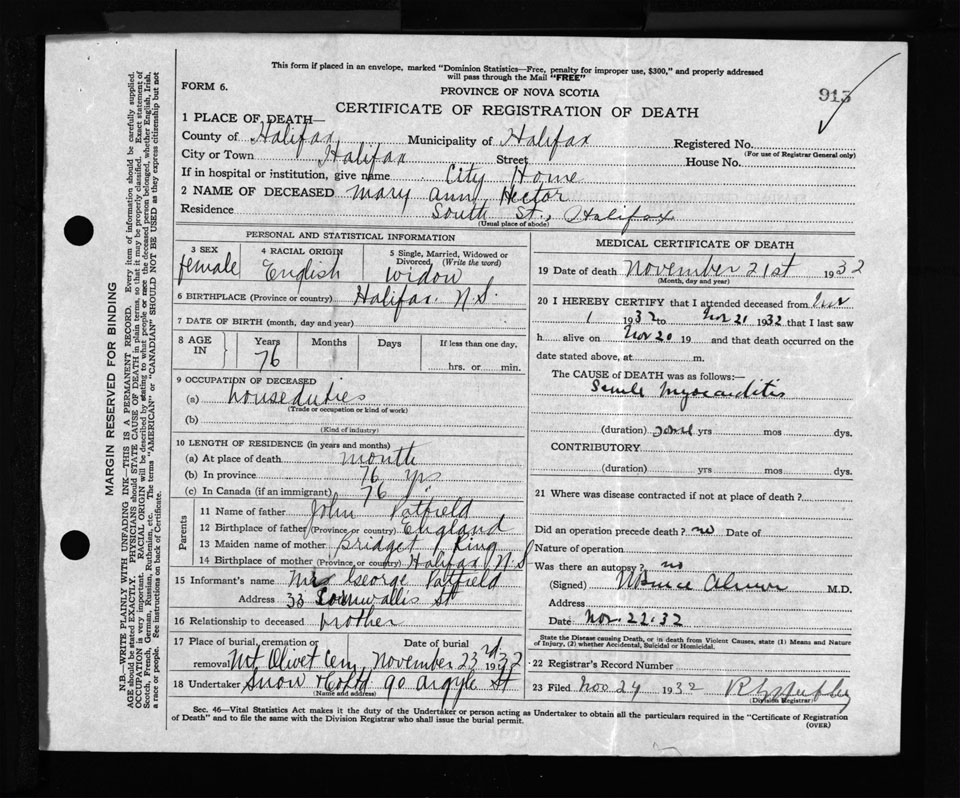 This form if placed in an envelope, marked "Dominion Statistics—Free, penalty for improper use, $300," and properly addressed
will pass through the Mail "FREE"
FORM 6.
PROVINCE OF NOVA SCOTIA
913
CERTIFICATE OF REGISTRATION OF DEATH
1 PLACE OF DEATH—
County of Halifax Municipality of Halifax Registered No.
(For use of Registrar General only)
City or Town Halifax Street House No.
If in hospital or institution, give name City Home
2 NAME OF DECEASED Mary Ann Hector
Residence South St., Halifax
(Usual place of abode)
PERSONAL AND STATISTICAL INFORMATION
3 SEX 4 RACIAL ORIGIN 5 Single, Married, Widowed or
Divorced, (Write the word)
female English widow
6 BIRTHPLACE (Province or country) Halifax N.S.
7 DATE OF BIRTH (month, day and year)
8 AGE IN Years Months Days If less than one day,
76 hrs. or min.
9 OCCUPATION OF DECEASED
(a) houseduties
(Trade or occupation or kind of work)
(b)
(Kind of industry)
10 LENGTH OF RESIDENCE (in years and months)
(a) At place of death month
(b) In province 76 yrs
(c) In Canada (if an immigrant) 76 "
Parents
11 Name of father John Patfield
12 Birthplace of father (Province or country) England
13 Maiden name of mother Bridget King
14 Birthplace of mother (Province or country) Halifax N.S
15 Informant's name Mrs George Patfield
Address 33 Cornwallis St
16 Relationship to deceased brother
17 Place of burial, cremation or Date of burial
removal Mt Olivet Cem November 23rd 1932
18 Undertaker Snow & Co Ltd 90 Argyle St
(Name and address)
MEDICAL CERTIFICATE OF DEATH
19 Date of death November 21st 1932
(Month, day and year)
20 I HEREBY CERTIFY that I attended deceased from Nov
1 1932 to Nov 21 1932 that I last saw
h alive on Nov 20 19 and that death occurred on the
date stated above, at m.
The CAUSE OF DEATH was as follows:—
Senile Myocarditis
(duration) yrs mos dys.
CONTRIBUTORY
(duration) yrs mos dys.
21 Where was disease contracted if not at place of death?
Did an operation precede death? no Date of
Nature of operation
Was there an autopsy? no
(Signed) M.D.
Address
Date Nov. 22.32
State the Disease causing Death, or in death from Violent Causes, state (1) Means and Nature
of Injury, (2) whether Accidental, Suicidal or Homicidal.
22 Registrar's Record Number
23 Filed Nov 24 1932
(Division Registrar)
Sec. 46—Vital Statistics Act makes it the duty of the Undertaker or person acting as Undertaker to obtain all the particulars required in the "Certificate of Registration
of Death" and to file the same with the Division Registrar who shall issue the burial permit.
(OVER)
MARGIN RESERVED FOR BINDING
N.B.—WRITE PLAINLY WITH UNFADING INK—THIS IS A PERMANENT RECORD. Every item of information should be carefully supplied.
AGE should be stated EXACTLY. PHYSICIANS should STATE CAUSE OF DEATH in plain terms, so that it may be properly classified. Exact statement of
OCCUPATION is very important. RACIAL ORIGIN will be described by stating to what people or race the deceased person belonged, whether English, Irish,
Scotch, French, German, Russian, Ruthenian, etc. The terms "AMERICAN" or "CANADIAN" SHOULD NOT BE USED as they express citizenship but not
a race or people. See instructions on back of Certificate.